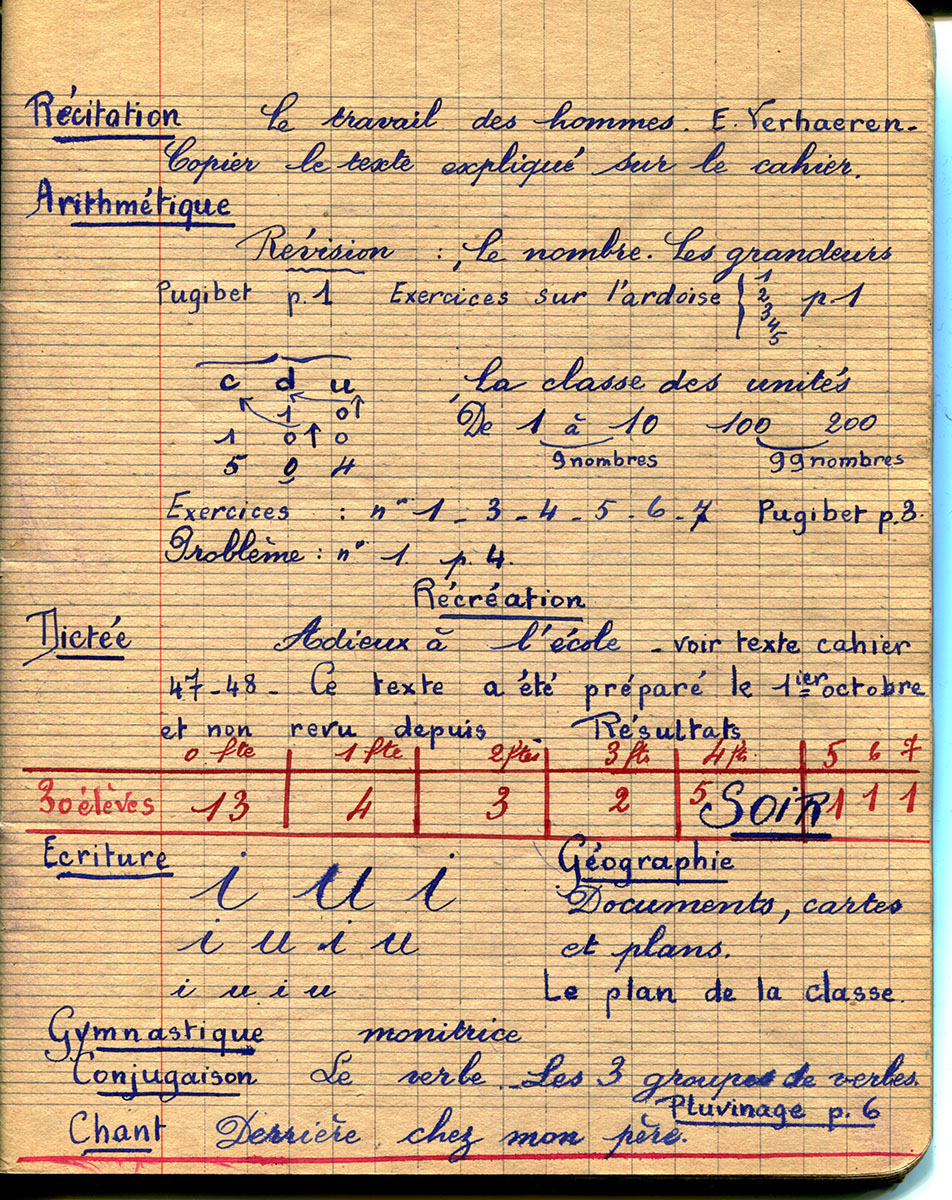 Récitation Le travail des hommes. E. Verhaeren.
Copier le texte expliqué sur le cahier.
Arithmétique
Révision : Le nombre. Les grandeurs
Pugibet p.1 Exercices sur l'ardoise { 1 2 3 4 5 p.1
c d u La classe des unités
1 0 De 1 à 10 100 200
1 0 0 9 nombres 99 nombres
5 0 4
Exercices : n° 1 - 3 - 4 - 5 - 6 - 7 Pugibet p.3.
Problème : n° 1. p. 4.
Récréation
Dictée Adieux à l'école - voir texte cahier
47-48 - Ce texte a été préparé le 1ier octobre
et non revu depuis Résultats
0 fte 1 fte 2 ftes 3 fts 4 fts 5 6 7
30 élèves 13 4 3 2 5 1 1 1
SOIR
Ecriture i u i Géographie
Documents, cartes
i u i u et plans.
i u i u Le plan de la classe.
Gymnastique monitrice
Conjugaison Le verbe - Les 3 groupes de verbes.
Pluvinage p. 6
Chant Derrière chez mon père.